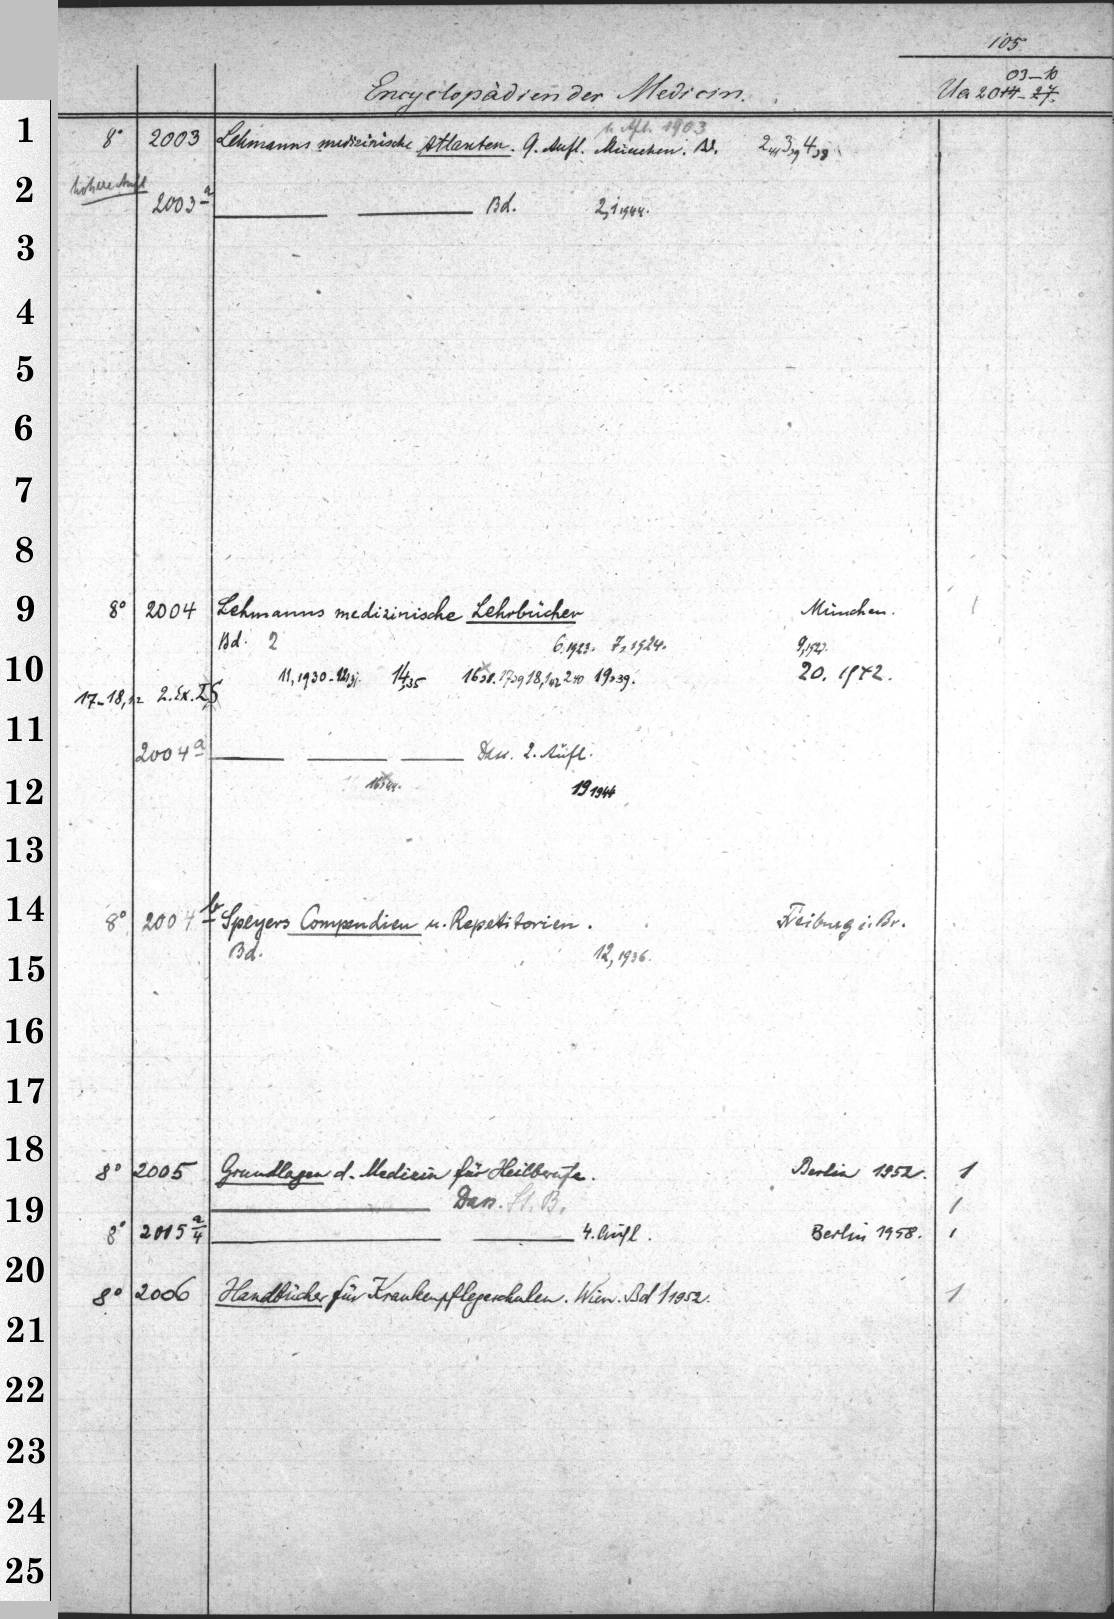 105
03-10
Encyclopädien der Medicin. Ua 2011-27.
1
u. Afl. 1903
8° 2003 Lehmanns medizinische Atlanten. 9. Aufl. München. Bd. 2,41 3,39 4,38
2
höhere Aufl
2003a Bd. 2,1 1944.
3
4
5
6
7
8
9
8° 2004 Lehmanns medizinische Lehrbücher München. 1
Bd. 2 6,1923. 7,1924. 9,1927.
10
11,1930-12,31. 14,35 16,38. 17,39 18,1,42 2,40 19,39. 20. 1942.
17-18,1,2 2. Ex. LS
11
2004a Dass. 2. Aufl.
12
16,44. 19 1944
13
14
8° 2004b Speyers Compendien u. Repetitorien. Freiburg i. Br.
15
Bd. 12,1936.
16
17
18
8° 2005 Grundlagen d. Medizin für Heilberufe. Berlin 1952. 1
19
Dass. St. B. 1
8° 2005a/4 4. Aufl. Berlin 1958. 1
20
8° 2006 Handbücher für Krankenpflegeschulen. Wien. Bd 1 1952. 1
21
22
23
24
25